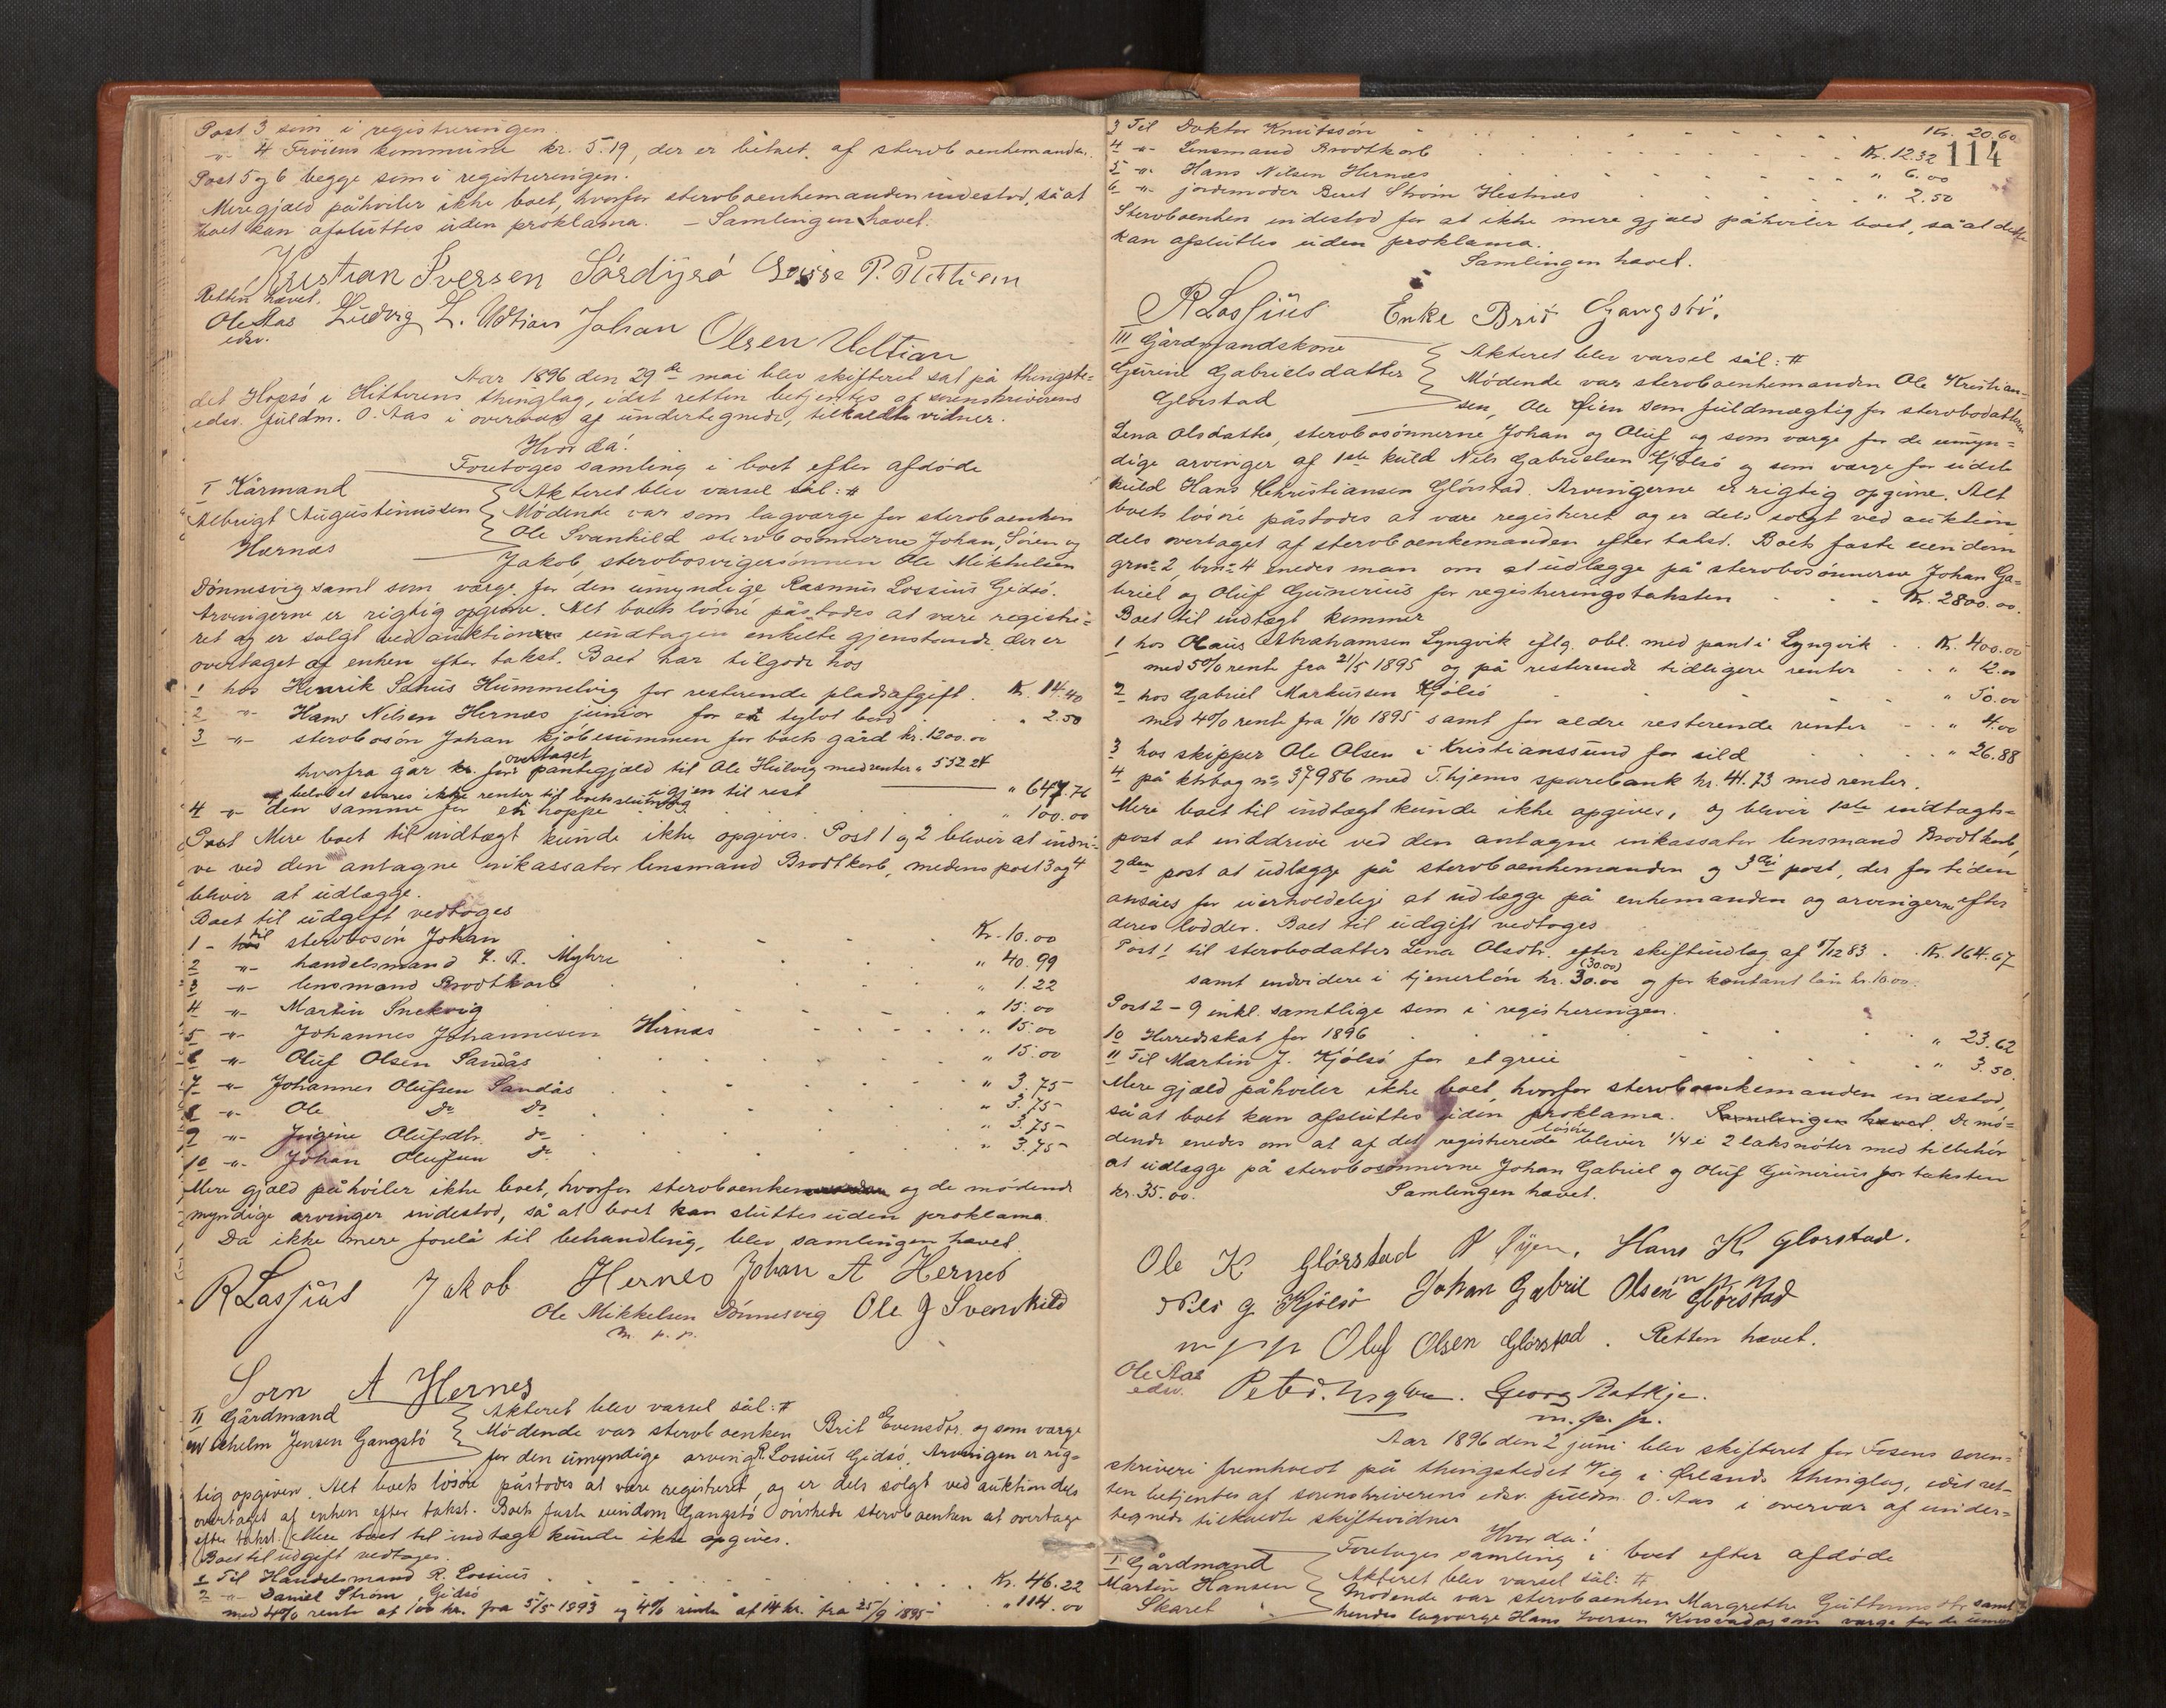 Post 3 som i registreringen.
" 4 Fröiens kommune kr. 5.19, der er betalt af sterboenkemanden.
Post 5 og 6 begge som i registreringen.
Mere gjæld påhviler ikke boet, hvorfor sterboenkemanden indestod, så at
boet kan afsluttes uden proklama. – Samlingen hævet.
Kristian Iversen Sördyrö P.
Retten hævet.
Ole Aas Ludvig L. Udtian Johan Olsen Udtian
edsv.
Aar 1896 den 29de mai blev skifteret sat på thingste-
det Hopsö i Hitterens thinglag, idet retten betjentes af sorenskriverens
edsv. fuldm. O. Aas i overvær af undertegnede, tilkaldte vidner.
Hvor da!
Foretoges samling i boet efter afdöde
I Kårmand
Albrigt Augustinussen
Hernæs
Akteret blev varsel sål: #
Mödende var som lagværge for sterboenken
Ole Svankild sterbosönnerne Johan, Sören og
Jakob, sterbosvigersönnen Ole Mikkelsen
Dönnesvig samt som værge for den umyndige Rasmus Lossius Gidsö.
Arvingerne er rigtig opgivne. Alt boets lösöre påstodes at være registre-
ret og er solgt ved auktion undtagen enkelte gjenstande der er
overtaget af enken efter takst. Boet har tilgode hos
1 hos Henrik Hummelvig for resterende pladsafgift. Kr. 14.40
2 " Hans Nilsen Hernæs junior for et tylvt bord " 2.50
3 " sterbosön Johan kjöbesummen for boets gård kr. 1200.00
hvorfra går for overtaget pantegjæld til Ole Heilvig med renter " 552 24
igjen til rest " 647.76
belöbet svares ikke renter til boets slutning
4 " den samme for en hoppe " 100.00
Mere boet til indtægt kunde ikke opgives. Post 1 og 2 blivir at inddri-
ve ved den antagne inkassator lensmand Brodtkorb, medens post 3 og 4
blivir at udlægge.
Boet til udgift vedtoges
1 – til sterbosön Johan Kr. 10.00
2 " handelsmand Myhre " 40.99
3 " lensmand Brodtkorb " 1.22
4 " Martin Snekvig " 15.00
5 " Johannes Johannesen Hernæs " 15.00
6 " Oluf Olsen Sandås " 15.00
7 " Johannes Olufsen Sandås " 3.75
8 " Ole do do " 3.75
9 " Jrgine Olufsdtr. do " 3.75
10 " Johan Olufsen do " 3.75
Mere gjæld påhviler ikke boet, hvorfor sterboenken og de mödende
myndige arvinger indestod, så at boet kan sluttes uden proklama.
Da ikke mere forelå til behandling, blev samlingen hævet.
R Lossius Jakob Hernes Johan A Hernes
Ole Mikkelsen Dönnesvig Ole J Svenkild
m. p. p.
Sorn A Hernes
II Gårdmand
Vilhelm Jensen Gangstö
Akteret blev varsel sål: #
Mödende var sterboenken Brit Evensdtr. og som værge
for den umyndige arving R. Lossius Gidsö. Arvingen er rig-
tig opgiven. Alt boets lösöre påstodes at være registreret, og er dels solgt ved auktion dels
overtaget af enken efter takst. Boets faste eiendom Gangstö önskede sterboenken at overtage
efter takst. Mere boet til indtægt kunde ikke opgives.
Boet til udgift vedtoges.
1 Til Handelsmand R. Lossius Kr. 46.22
2 " Daniel Ström Gidsö
med 4% rente af 100 kr. fra 5/5 1893 og 4% rente af 14 kr. fra 25/9 1895 " 114.00
114
3 Til Doktor Knutssön Kr. 20.60
4 " Lensmand Brodtkorb Kr. 12.32
5 " Hans Nilsen Hernæs " 6.00
6 " jordemoder Beret Ström Hestnæs " 2.50
Sterboenken indestod for at ikke mere gjæld påhviler boet, så at dette
kan afsluttes uden proklama.
Samlingen hævet.
R Lossius Enke Brit Gangstö.
III Gårdmandskone
Gurine Gabrielsdatter
Glörstad
Akteret blev varsel sål: #
Mödende var sterboenkemanden Ole Kristian-
sen, Ole Öien som fuldmægtig for sterbodatteren
Lena Olsdatter, sterbosönnerne Johan og Oluf og som værge for de umyn-
dige arvinger af 1ste kuld Nils Gabrielsen Kjölsö og som værge for sidste
kuld Hans Christiansen Glörstad. Arvingerne er rigtig opgivne. Alt
boets lösöre påstodes at være registreret og er dels solgt ved auktion
dels overtaget af sterboenkemanden efter takst. Boets faste eiendom
grno 2, brno 4 enedes man om at udlægge på sterbosönnerne Johan Ga-
briel og Oluf Gunerius for registreringstaksten Kr. 2800.00.
Boet til indtægt kommer
1 hos Olaus Abrahamsen Lyngvik eftg. obl. med pant i Lyngvik Kr. 400.00
med 5% rente fra 21/5 1895 og på resterende tidligere renter " 12.00
2 hos Gabriel Markussen Kjölsö " 50.00
med 4% rente fra 1/10 1895 samt for ældre resterende renter " 4.00
3 hos skipper Ole Olsen i Kristianssund for sild " 26.88
4 på ktrbog no 37986 med T.hjems sparebank kr. 41.73 med renter.
Mere boet til indtægt kunde ikke opgives, og blivir 1ste indtægts-
post at inddrive ved den antagne inkassator lensmand Brodtkorb,
2den post at udlægge på sterboenkemanden og 3die post, der for tiden
ansées for uerholdelig at udlægge på enkemanden og arvingerne efter
deres lodder. Boet til udgift vedtoges
Post 1 til sterbodatter Lena Olsdtr. efter skifteudlæg af /12 83 Kr. 164.67
samt endvidere i tjenerlön kr. 30.00 (30.00) og for kontant lån kr. 10.00.
Post 2 – 9 inkl. samtlige som i registreringen.
10 Herredsskat for 1896 " 23.62
11 Til Martin J. Kjölsö for et greie " 3.50.
Mere gjæld påhviler ikke boet, hvorfor sterboenkemanden indestod,
så at boet kan afsluttes uden proklama. Samlingen hævet. De mö-
dende enedes om at af det registrerede lösöre blivir 1/4 i 2 laksnöter med tilbehör
at udlægge på sterbosönnerne Johan Gabriel og Oluf Gunerius for taksten
kr. 35.00. Samlingen hævet.
Ole K Glörstad O Öyen. Hans K Glorstad.
Nils G Kjölsö Johan Gabril Olsen Glorstad
m p p Oluf Olsen Glörstad. Retten hævet.
Ole Aas
edsv. Georg Ratkje.
m. p. p.
Aar 1896 den 2 juni blev skifteret for Fosens soren-
skriveri fremholdt på thingstedet Vig i Örlands thinglag, idet ret-
ten betjentes af sorenskriverens edsv. fuldm. O. Aas i overvær af under-
tegnede tilkaldte skiftevidner
Hvor da!
Foretoges samling i boet efter afdöde
I Gårdmand
Martin Hansen
Skaret
Akteret blev varsel sål: #
Mödende var sterboenken Margrethe Guttormsdtr. samt
hendes lagværge Hans Iversen og som værge for de umyn